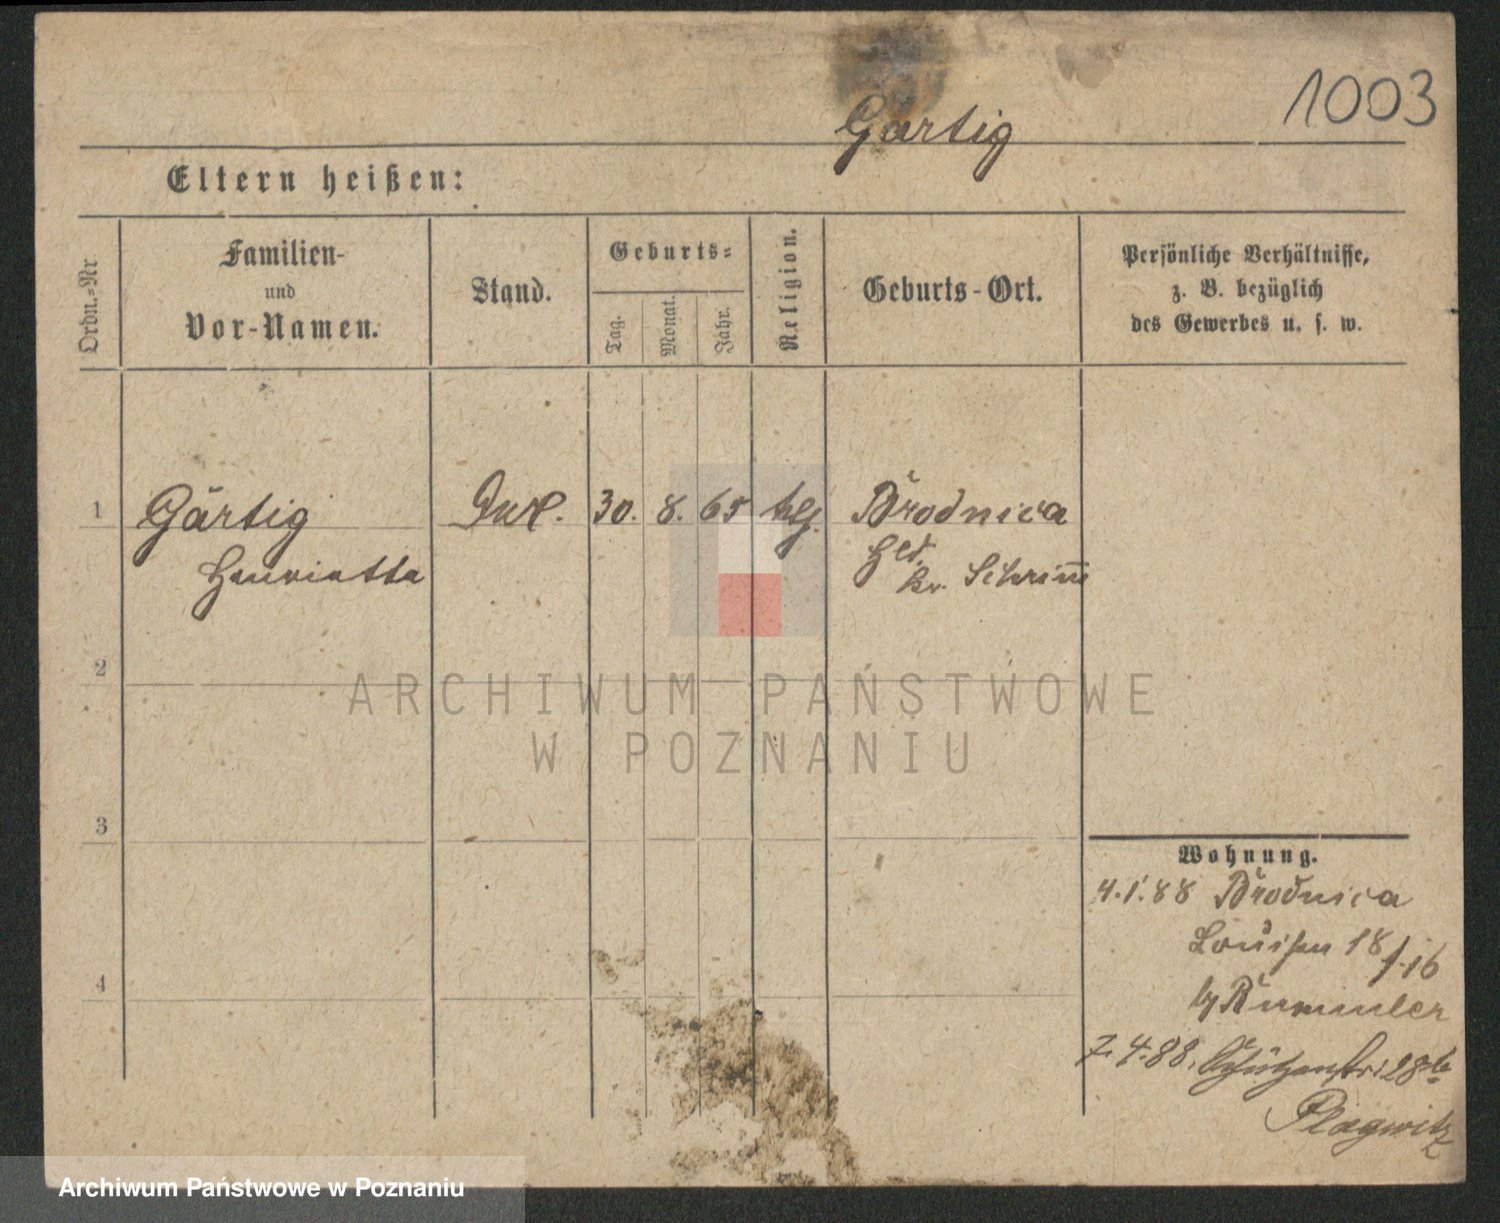 1003
Gärtig
Eltern heißen:
Ordn.-Nr
Familien-
und
Vor-Namen.
Stand.
Geburts-
Tag.
Monat.
Jahr.
Religion.
Geburts-Ort.
Persönliche Verhältnisse,
z. B. bezüglich
des Gewerbes u. s. w.
1 Gärtig 30. 8. 65 Brodnica
Henriette kr. Schrim̄
2
ARCHIWUM PAŃSTWOWE
W POZNANIU
3
Wohnung.
4.1.88 Brodnica
Louisen 18 / 16
b/ Rummler
4
7.4.88. Schützenstr. 28b
Plagwitz
Archiwum Państwowe w Poznaniu